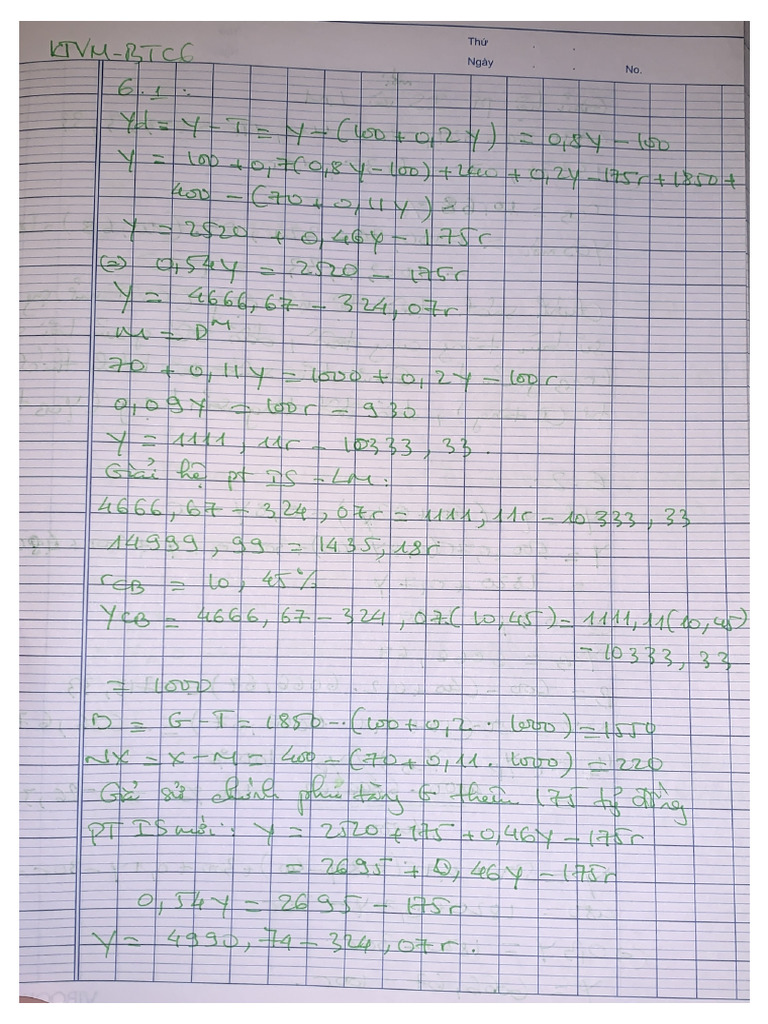 KTVM-BTC6
Thứ . .
Ngày . .
No.
6.1.
Yd = Y - T = Y - (100 + 0,2Y) = 0,8Y - 100
Y = 100 + 0,7(0,8Y - 100) + 240 + 0,2Y - 175r + 1850 +
400 - (70 + 0,11Y)
Y = 2520 + 0,46Y - 175r
(=) 0,54Y = 2520 - 175r
Y = 4666,67 - 324,07r
M = D^M
70 + 0,11Y = 1000 + 0,2Y - 100r
0,09Y = 100r - 930
Y = 1111,11r - 10333,33.
Giải hệ pt IS - LM:
4666,67 - 324,07r = 1111,11r - 10333,33
14999,99 = 1435,18r
rCB = 10,45%
YCB = 4666,67 - 324,07(10,45) = 1111,11(10,45)
- 10333,33
= 1000
B = G - T = 1850 - (100 + 0,2 . 1000) = 1550
NX = X - M = 400 - (70 + 0,11 . 1000) = 220
Giả sử chính phủ tăng G thêm 175 tỷ đồng
PT IS mới: Y = 2520 + 175 + 0,46Y - 175r
= 2695 + 0,46Y - 175r
0,54Y = 2695 - 175r
Y = 4990,74 - 324,07r.